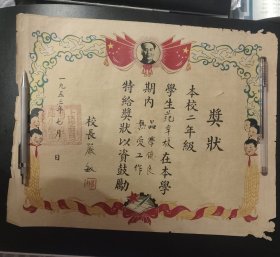 獎狀
本校二年級
學生範章枝在本學
期內品學優良
熱愛工作
特給獎狀以資鼓勵
校長嚴敏
一九五三年七月 日